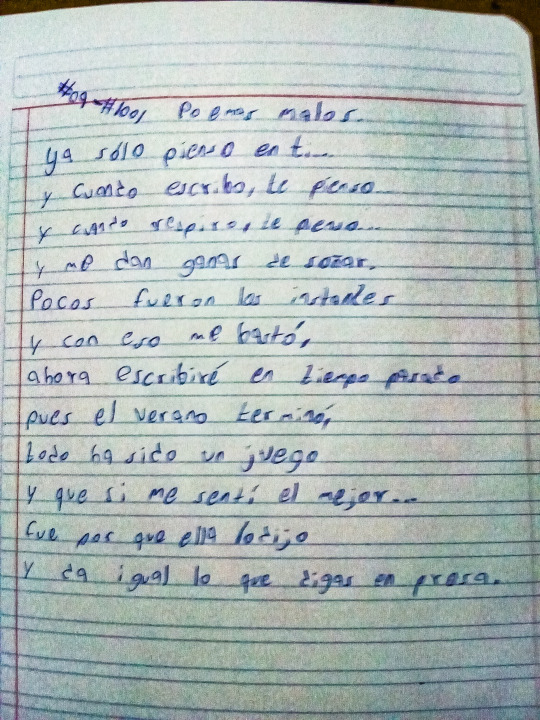 #09-#1001 Poemas malos.
ya sólo pienso en ti...
y cuando escribo, te pienso
y cuando respiro, te pienso...
y me dan ganas de soñar.
Pocos fueron los instantes
y con eso me bastó,
ahora escribiré en tiempo pasado
pues el verano terminó,
todo ha sido un juego
y que si me sentí el mejor...
fue por que ella lo dijo
y da igual lo que digas en prosa.